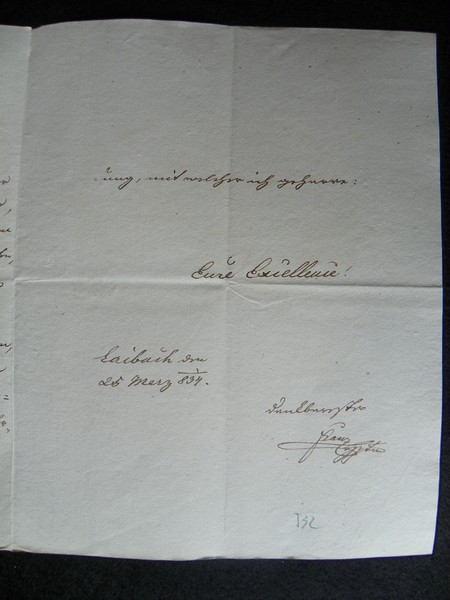 ung, mit welcher ich geharre:
Eure Excellenz!
Laibach den
25 Merz 834.
dankbarster
Franz